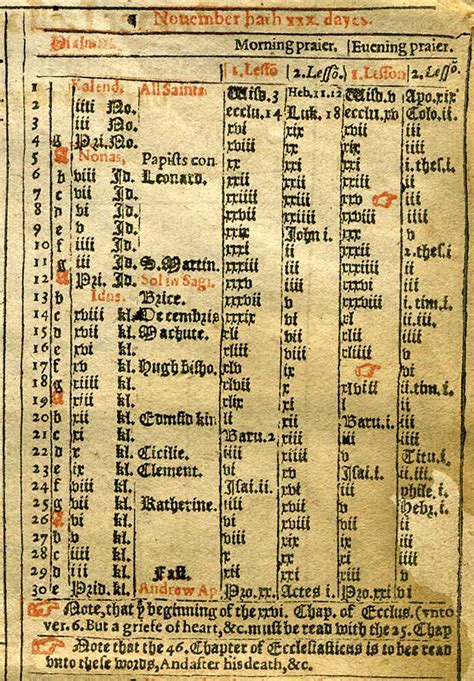 Nouember hath xxx. dayes.
Psalmes Morning praier. Euening praier.
1. Lessō 2. Lessō. 1. Lesson 2. Lessō.
1 Kalend. All Saints Wisd.3 Heb.11.12 Wisd.v Apo.xix
2 iiii No. ecclu.14 Luk. 18 ecclu.xv Colo.ii.
3 iii No. xvi xix xvii iii
4 g Pri. No. xviii xx xix iiii
5 A Nonas, Papists con xx xxi xxi i.thes.i.
6 b viii Id. Leonard. xxii xxii xxiii ii
7 c vii Id. xxiiii xxiii xxv ☞ iii
8 d vi Id. xxvii xxiiii xxviii iiii
9 e v Id. xxix John i. xxx v
10 f iiii Id. xxxi ii xxxii ii.thes.i
11 g iii Id. S. Martin. xxxiii iii xxxiiii ii
12 A Pri. Id. Sol in Sagi. xxxv iiii xxxvi iii
13 b Idus. Brice. xxxvii v xxxviii i.tim.i.
14 c xviii kl. Decembris xxxix vi xl ii.iii.
15 d xvii kl. Machute. xli vii xlii iiii
16 e xvi kl. xliii viii xliiii v
17 f xv kl. Hugh bisho. xlv ix ☞ vi
18 g xiiii kl. xlvii x xlviii ii.tim.i.
19 A xiii kl. xlix xi l ii
20 b xii kl. Edmūd kin li xii Baru.i. iii
21 c xi kl. Baru.2 xiii iii iiii
22 d x kl. Cicilie. iiii xiiii v Titu.i.
23 e ix kl. Clement. vi xv Isai.i. ii.iii.
24 f viii kl. Isai.ii. xvi iii phile.i.
25 g vii kl. Katherine. iiii xvii v Hebr.i.
26 A vi kl. vi xviii vii ii
27 b v kl. viii xix ix iii
28 c iiii kl. x xx xi iiii
29 d iii kl. Fast. xii xxi xiii v
30 e Prid. kl. Andrew Ap Pro.xx. Actes i. Pro.xxi vi
☞ Note, that yᵉ beginning of the xxvi. Chap. of Ecclus. (vnto
ver. 6. But a griefe of heart, &c. must be read with the 25. Chap
☞ Note that the 46. Chapter of Ecclesiasticus is to bee read
vnto these words, And after his death, &c.